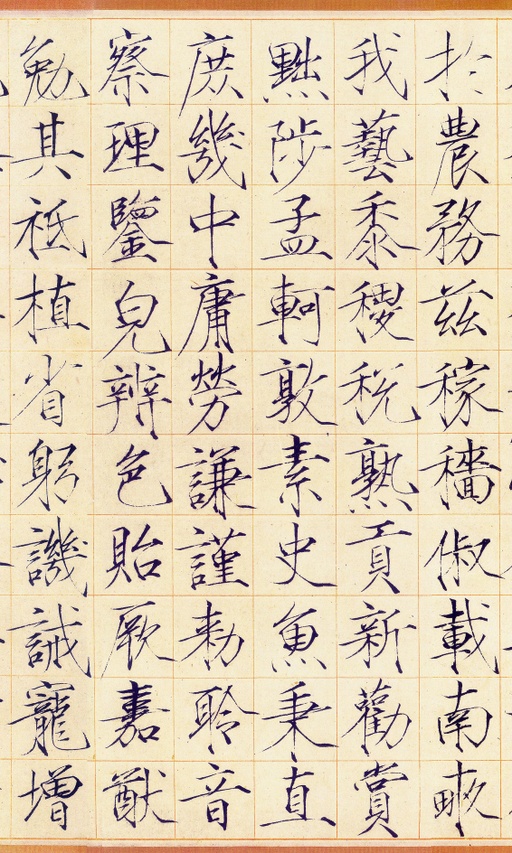 扵農務茲稼穡俶載南畞
我藝黍稷稅熟貢新勸賞
黜陟孟軻敦素史魚秉直
庶幾中庸勞謙謹勑聆音
察理鑒皃辨色貽厥嘉猷
勉其祗植省躬譏誡寵增